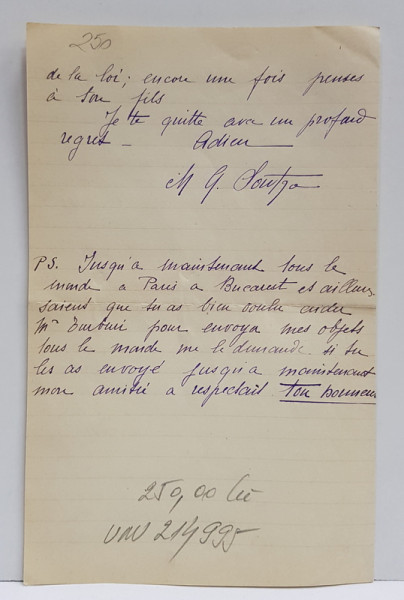 250
de la loi; encore une fois penses
à ton fils
Je te quitte avec un profond
regret — Adieu
M G. Soutzo
PS. Jusqu'a maintenant tous le
monde a Paris a Bucarest et ailleurs
savent que tu as bien voulu aider
Mr pour envoya mes objets
tous le monde me le demande si tu
les as envoyé jusqu'a maintenant
mon amitié a respectait ton honneur
250,00 lei
UNU 214995